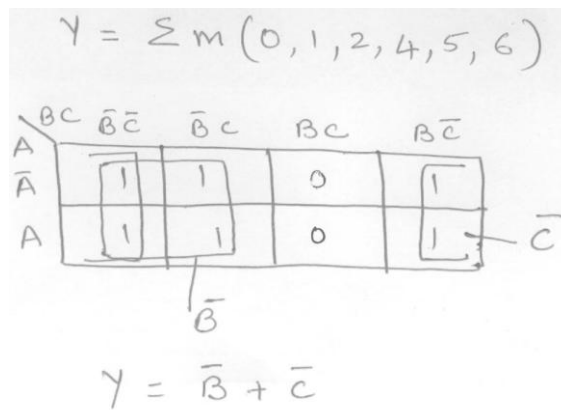 Y = Σm(0,1,2,4,5,6)
BC B̄C̄ B̄C BC BC̄
A
Ā 1 1 0 1
A 1 1 0 1 C̄
B̄
Y = B̄ + C̄